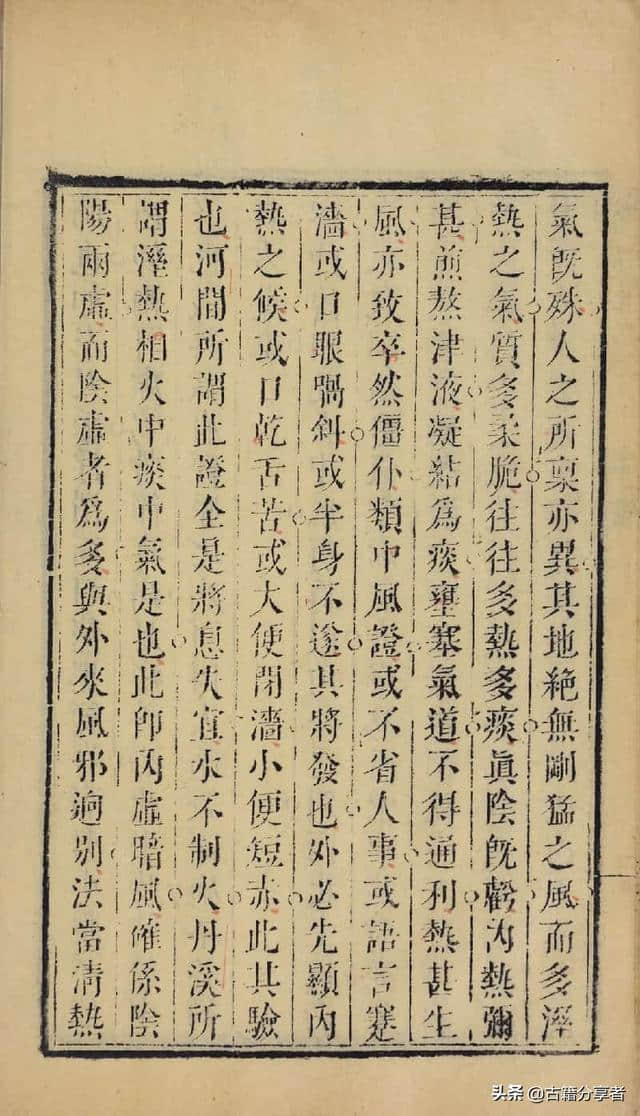 氣既殊人之所稟亦異其地絶無剛猛之風而多溼
熱之氣質多柔脆往往多熱多痰眞陰既虧內熱彌
甚煎熬津液凝結爲痰壅塞氣道不得通利熱甚生
風亦致卒然僵仆類中風證或不省人事或語言蹇
濇或口眼喎斜或半身不遂其將發也外必先顯內
熱之候或口乾舌苦或大便閉濇小便短赤此其驗
也河間所謂此證全是將息失宜水不制火丹溪所
謂溼熱相火中痰中氣是也此即內虛暗風確係陰
陽兩虛而陰虛者爲多與外來風邪迥別法當清熱
头条@古籍分享者